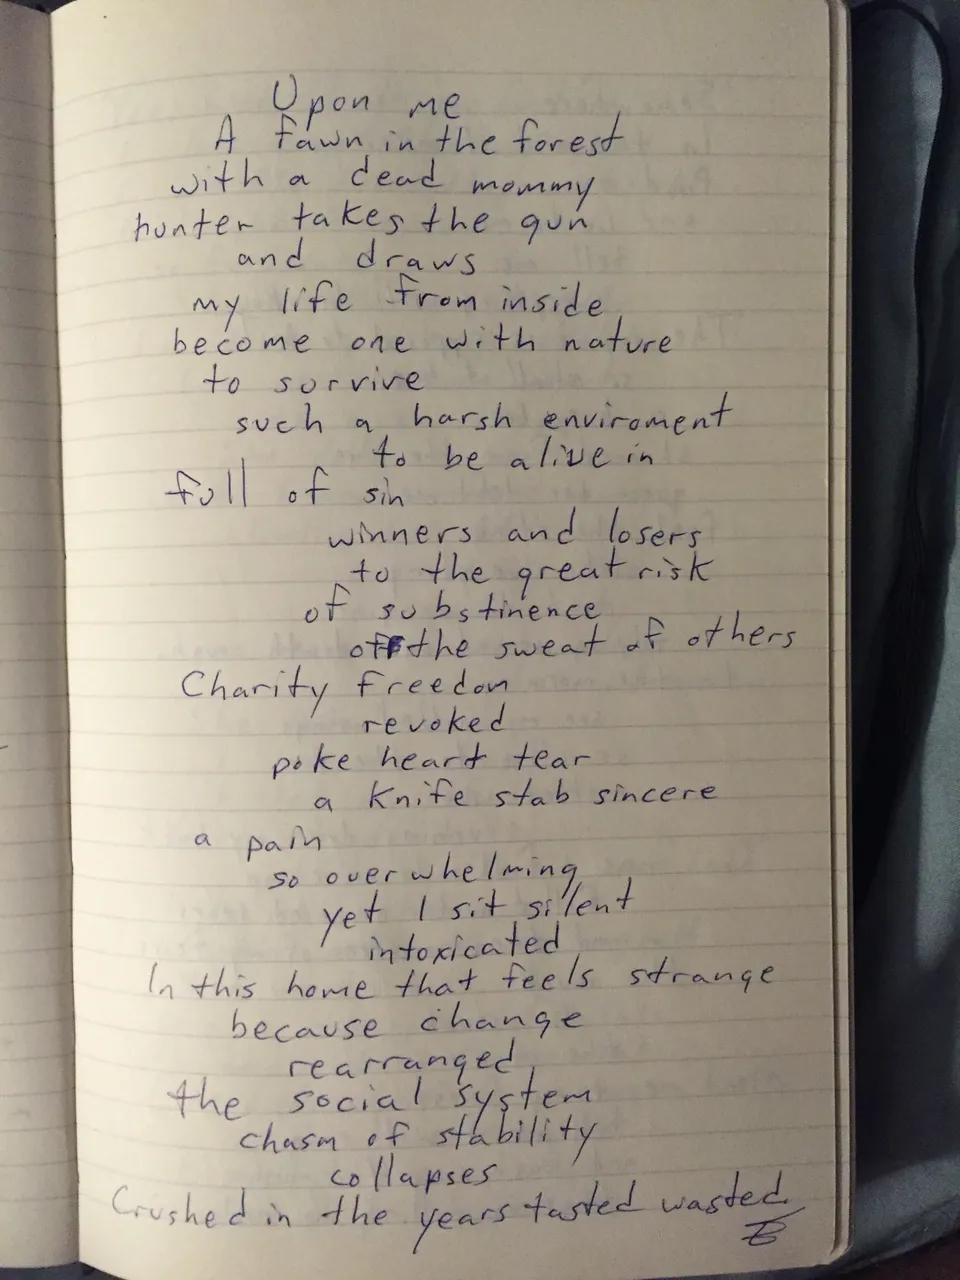 Upon me
A fawn in the forest
with a dead mommy
hunter takes the gun
and draws
my life from inside
become one with nature
to survive
such a harsh enviroment
to be alive in
full of sin
winners and losers
to the great risk
of substinence
off the sweat of others
Charity freedom
revoked
poke heart tear
a knife stab sincere
a pain
so overwhelming
yet I sit silent
intoxicated
In this home that feels strange
because change
rearranged
the social system
chasm of stability
collapses
Crushed in the years tasted wasted